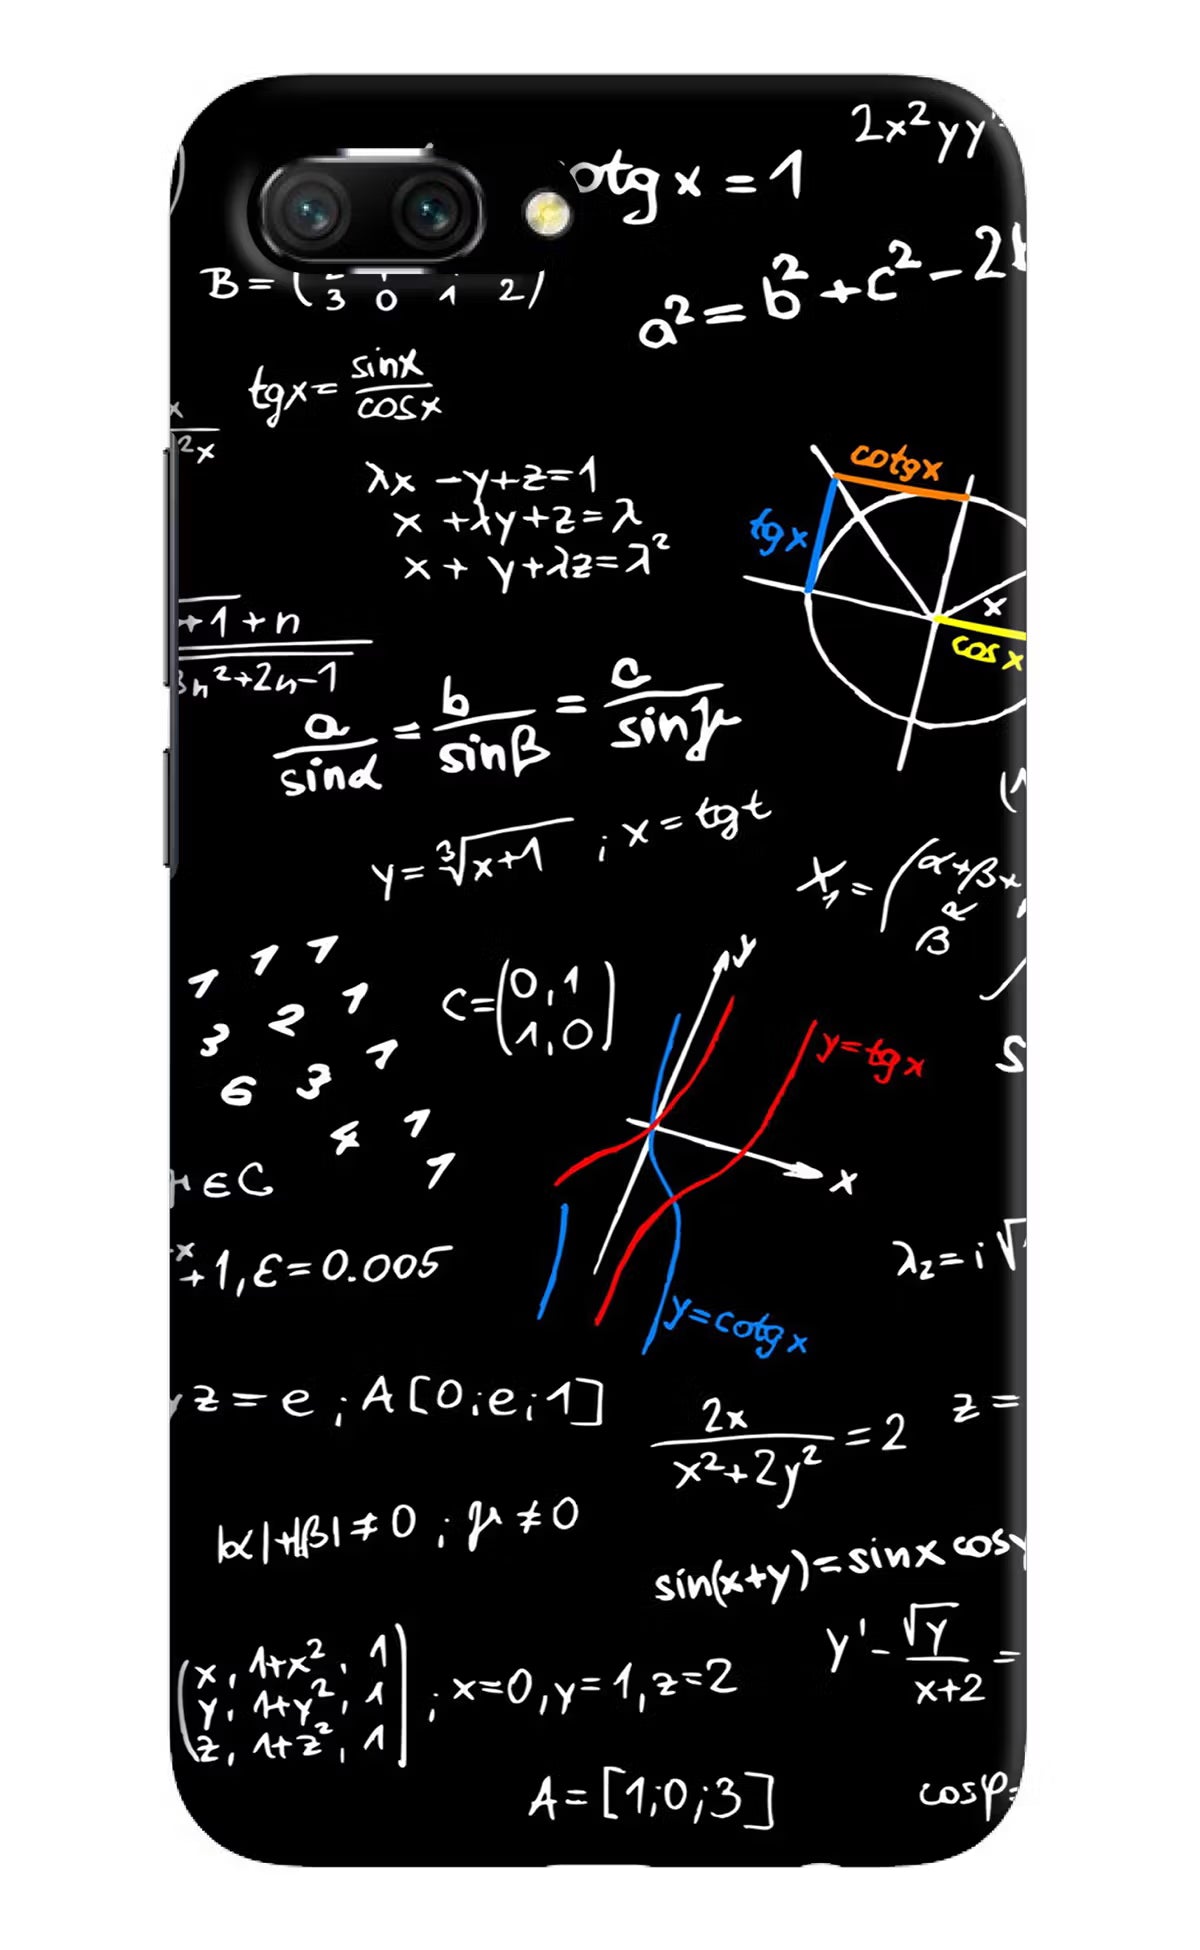 2x²yy'
otg x = 1
B = (3 0 1 2)
a² = b² + c² - 2
tgx = sinx/cosx
x
2x
cotgx
λx - y + z = 1
x + λy + z = λ
x + y + λz = λ²
tgx
x
cos x
+1 + n
3n²+2n-1
a/sinα = b/sinβ = c/sinγ
y = ∛(x+1) ; x = tgt
X₁ = (α+β+
β R
1 1 1
3 2 1
6 3 1
4 1
1
C = (0,1
1,0)
y
y=tgx
S
x
μ ∈ C
x
+1, ε = 0.005
λ₂ = i√
y=cotgx
z = e ; A[0;e;1]
2x/(x²+2y²) = 2
z =
|α|+|β| ≠ 0 ; μ ≠ 0
sin(x+y) = sinx cosy
y' - √y/(x+2) =
(x, 1+x², 1
y, 1+y², 1
z, 1+z², 1) ; x=0, y=1, z=2
A = [1;0;3]
cosφ=